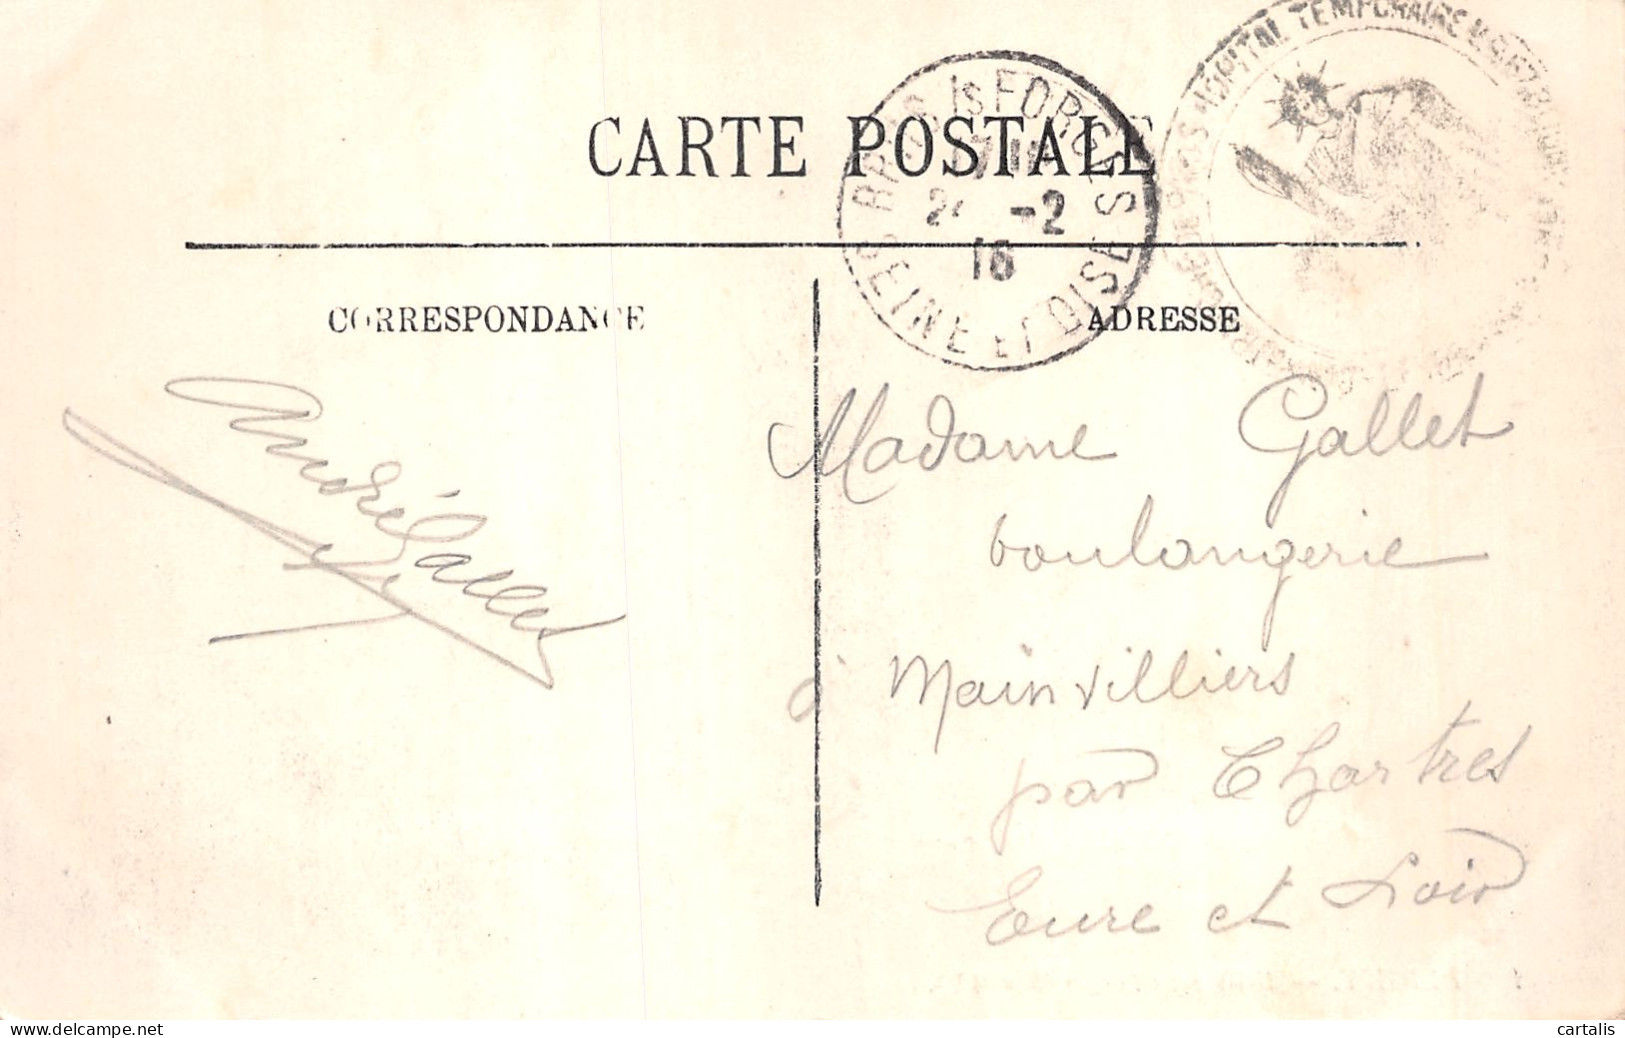 CARTE POSTALE
HOPITAL TEMPORAIRE
BRIIS Is FORGES
2 -2
16
SEINE ET OISE
CORRESPONDANCE
ADRESSE
André Gallet
Madame Gallet
boulangerie
à Mainvilliers
par Chartres
Eure et Loir
www.delcampe.net
cartalis